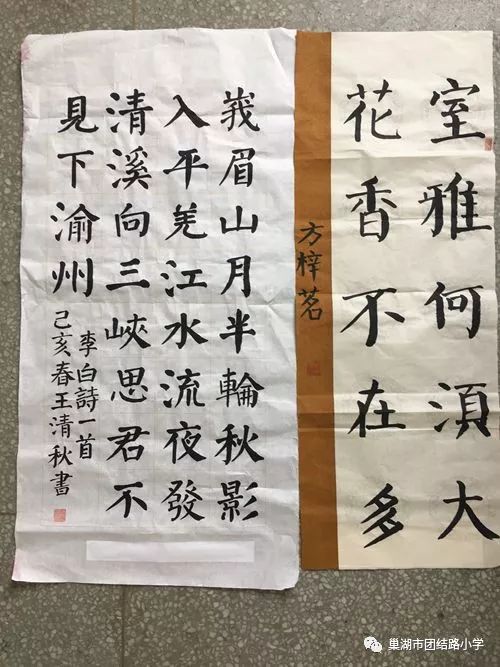 室雅何湏大
花香不在多
方梓茗
峩眉山月半輪秋影
入平羌江水流夜發
清溪向三峽思君不
見下渝州
李白詩一首
己亥春王清秋書
巢湖市团结路小学